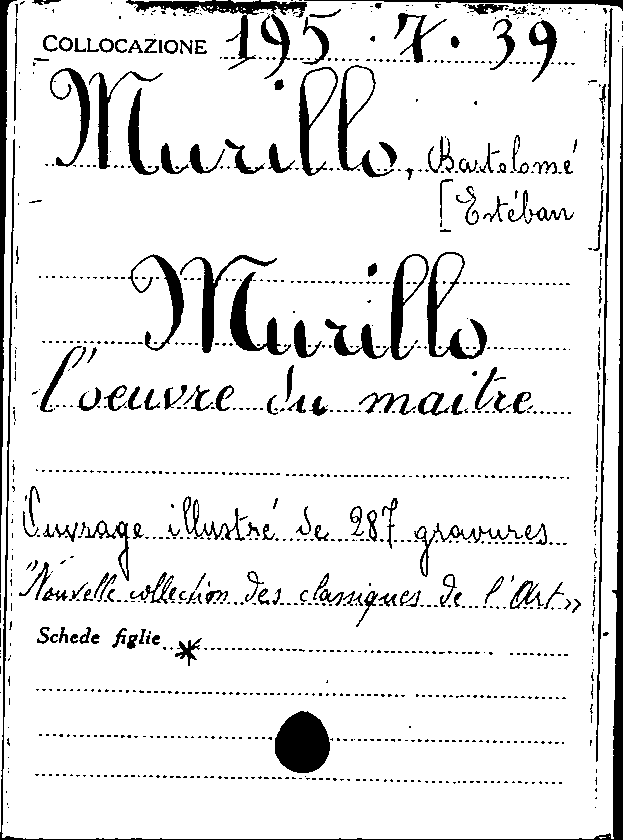 COLLOCAZIONE 195.7.39
Murillo, Bartolomé
[Estéban
Murillo
l'oeuvre du maitre
Ouvrage illustré de 287 gravures
"Nouvelle collection des classiques de l'Art»
Schede figlie *